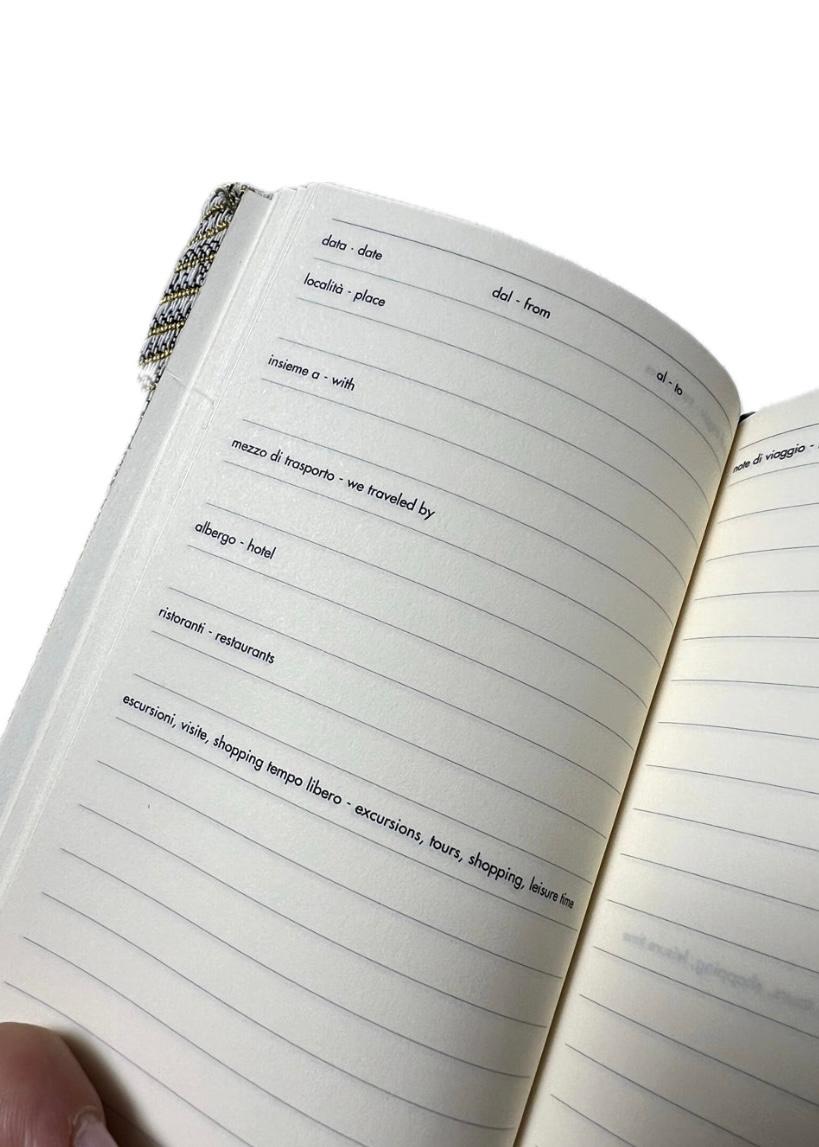 data - date
dal - from
al - to
località - place
insieme a - with
mezzo di trasporto - we traveled by
albergo - hotel
ristoranti - restaurants
escursioni, visite, shopping tempo libero - excursions, tours, shopping, leisure time
note di viaggio -